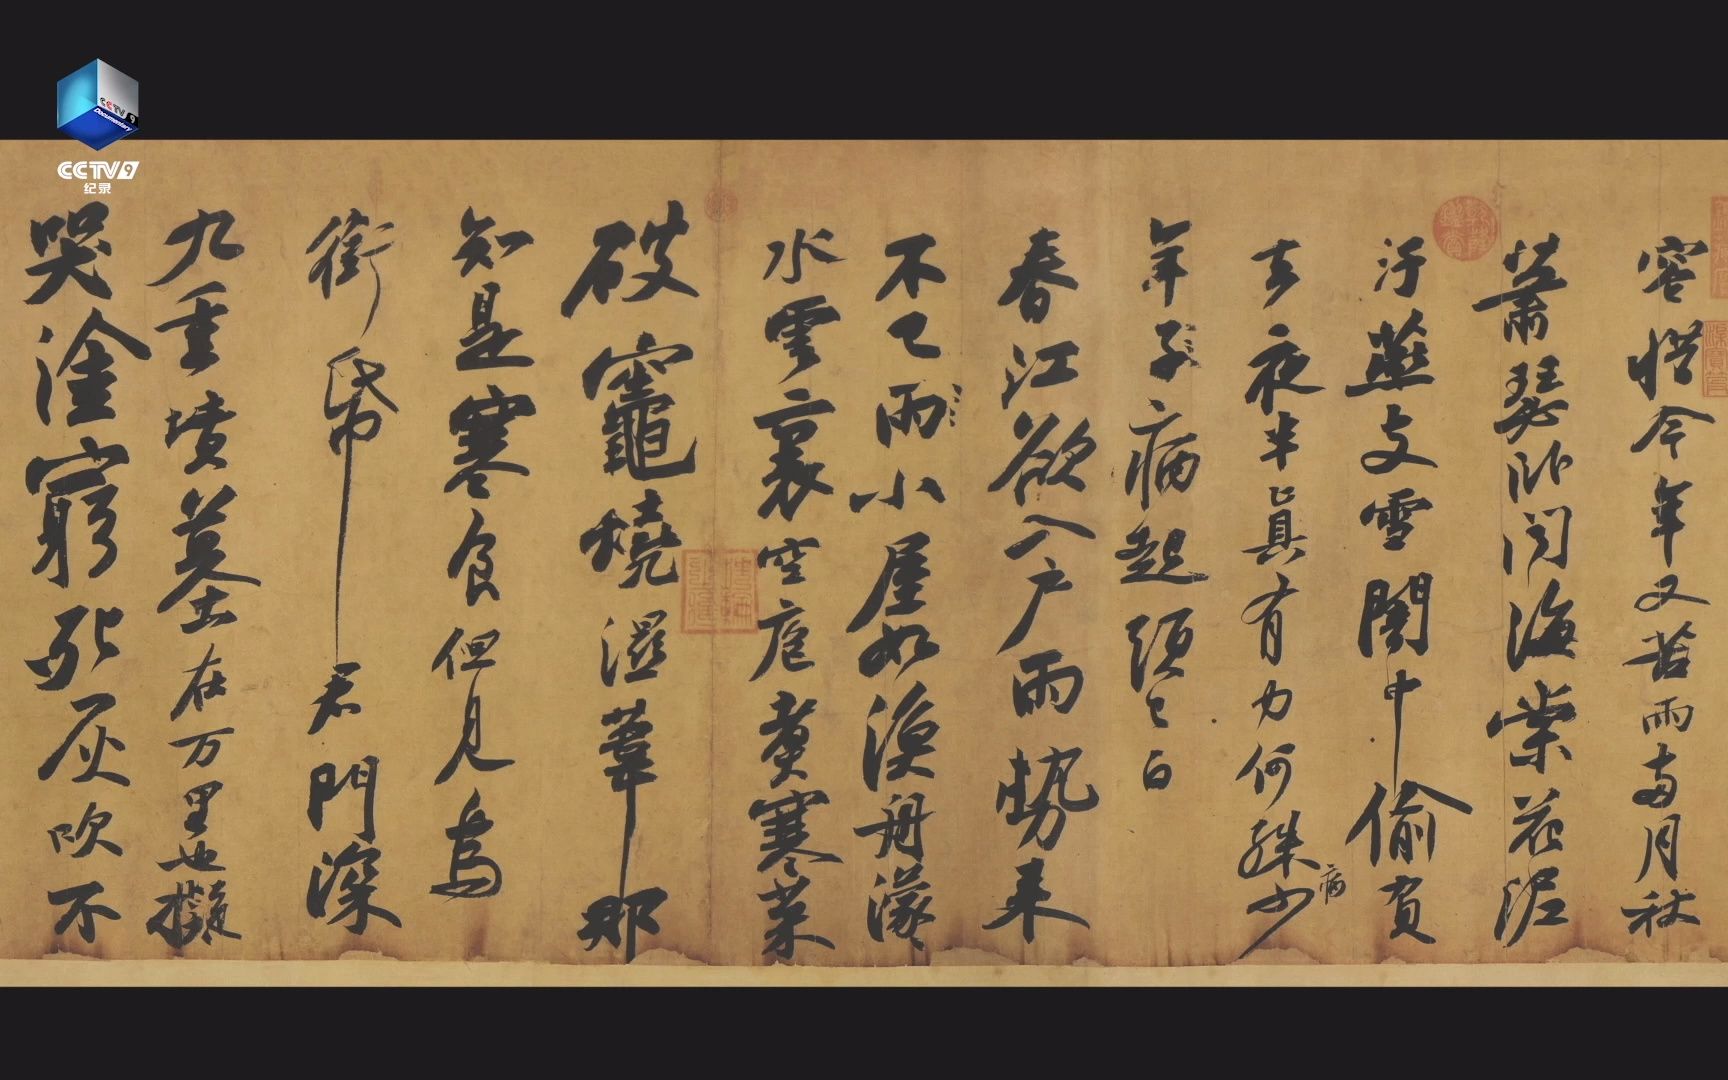 CCTV 9
Documentary
CCTV 9
纪录
容惜今年又苦雨兩月秋
蕭瑟卧聞海棠花泥
汙燕支雪闇中偷負
去夜半真有力何殊病少
年子病起頭已白
春江欲入戶雨勢来
不已雨小屋如漁舟濛々
水雲裏空庖煮寒菜
破竈燒濕葦那
知是寒食但見烏
銜帋君門深
九重墳墓在万里也擬
哭塗窮死灰吹不